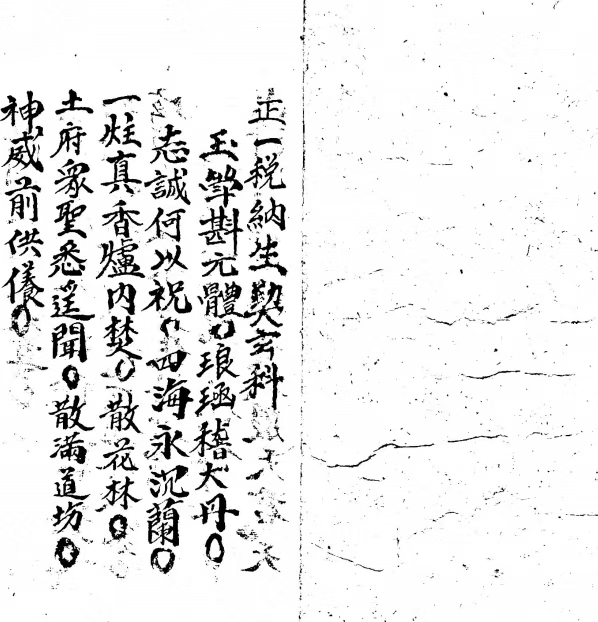 正一税納生契玄科
玉斝斟元醴〇琅函稽大丹〇
志誠何以祝〇四海永沉蘭〇
一炷真香爐内焚〇散花林〇
土府眾聖悉遥聞〇散滿道坊〇
神威前供儀〇